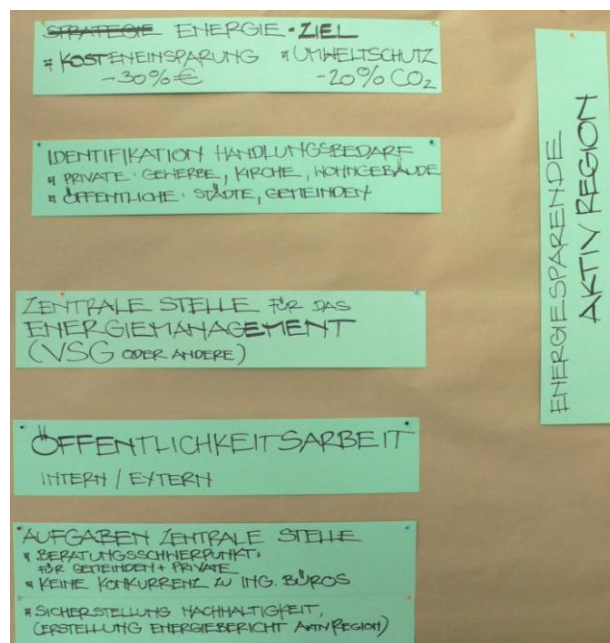 STRATEGIE ENERGIE-ZIEL
* KOSTENEINSPARUNG * UMWELTSCHUTZ
-30% € -20% CO₂
IDENTIFIKATION HANDLUNGSBEDARF
* PRIVATE: GEWERBE, KIRCHE, WOHNGEBÄUDE
* ÖFFENTLICHE: STÄDTE, GEMEINDEN
ZENTRALE STELLE FÜR DAS
ENERGIEMANAGEMENT
(VSG ODER ANDERE)
ÖFFENTLICHKEITSARBEIT
INTERN / EXTERN
AUFGABEN ZENTRALE STELLE
* BERATUNGSSCHWERPUNKT:
FÜR GEMEINDEN + PRIVATE
* KEINE KONKURRENZ ZU ING. BÜROS
* SICHERSTELLUNG NACHHALTIGKEIT,
(ERSTELLUNG ENERGIEBERICHT AKTIVREGION)
ENERGIESPARENDE
AKTIV REGION